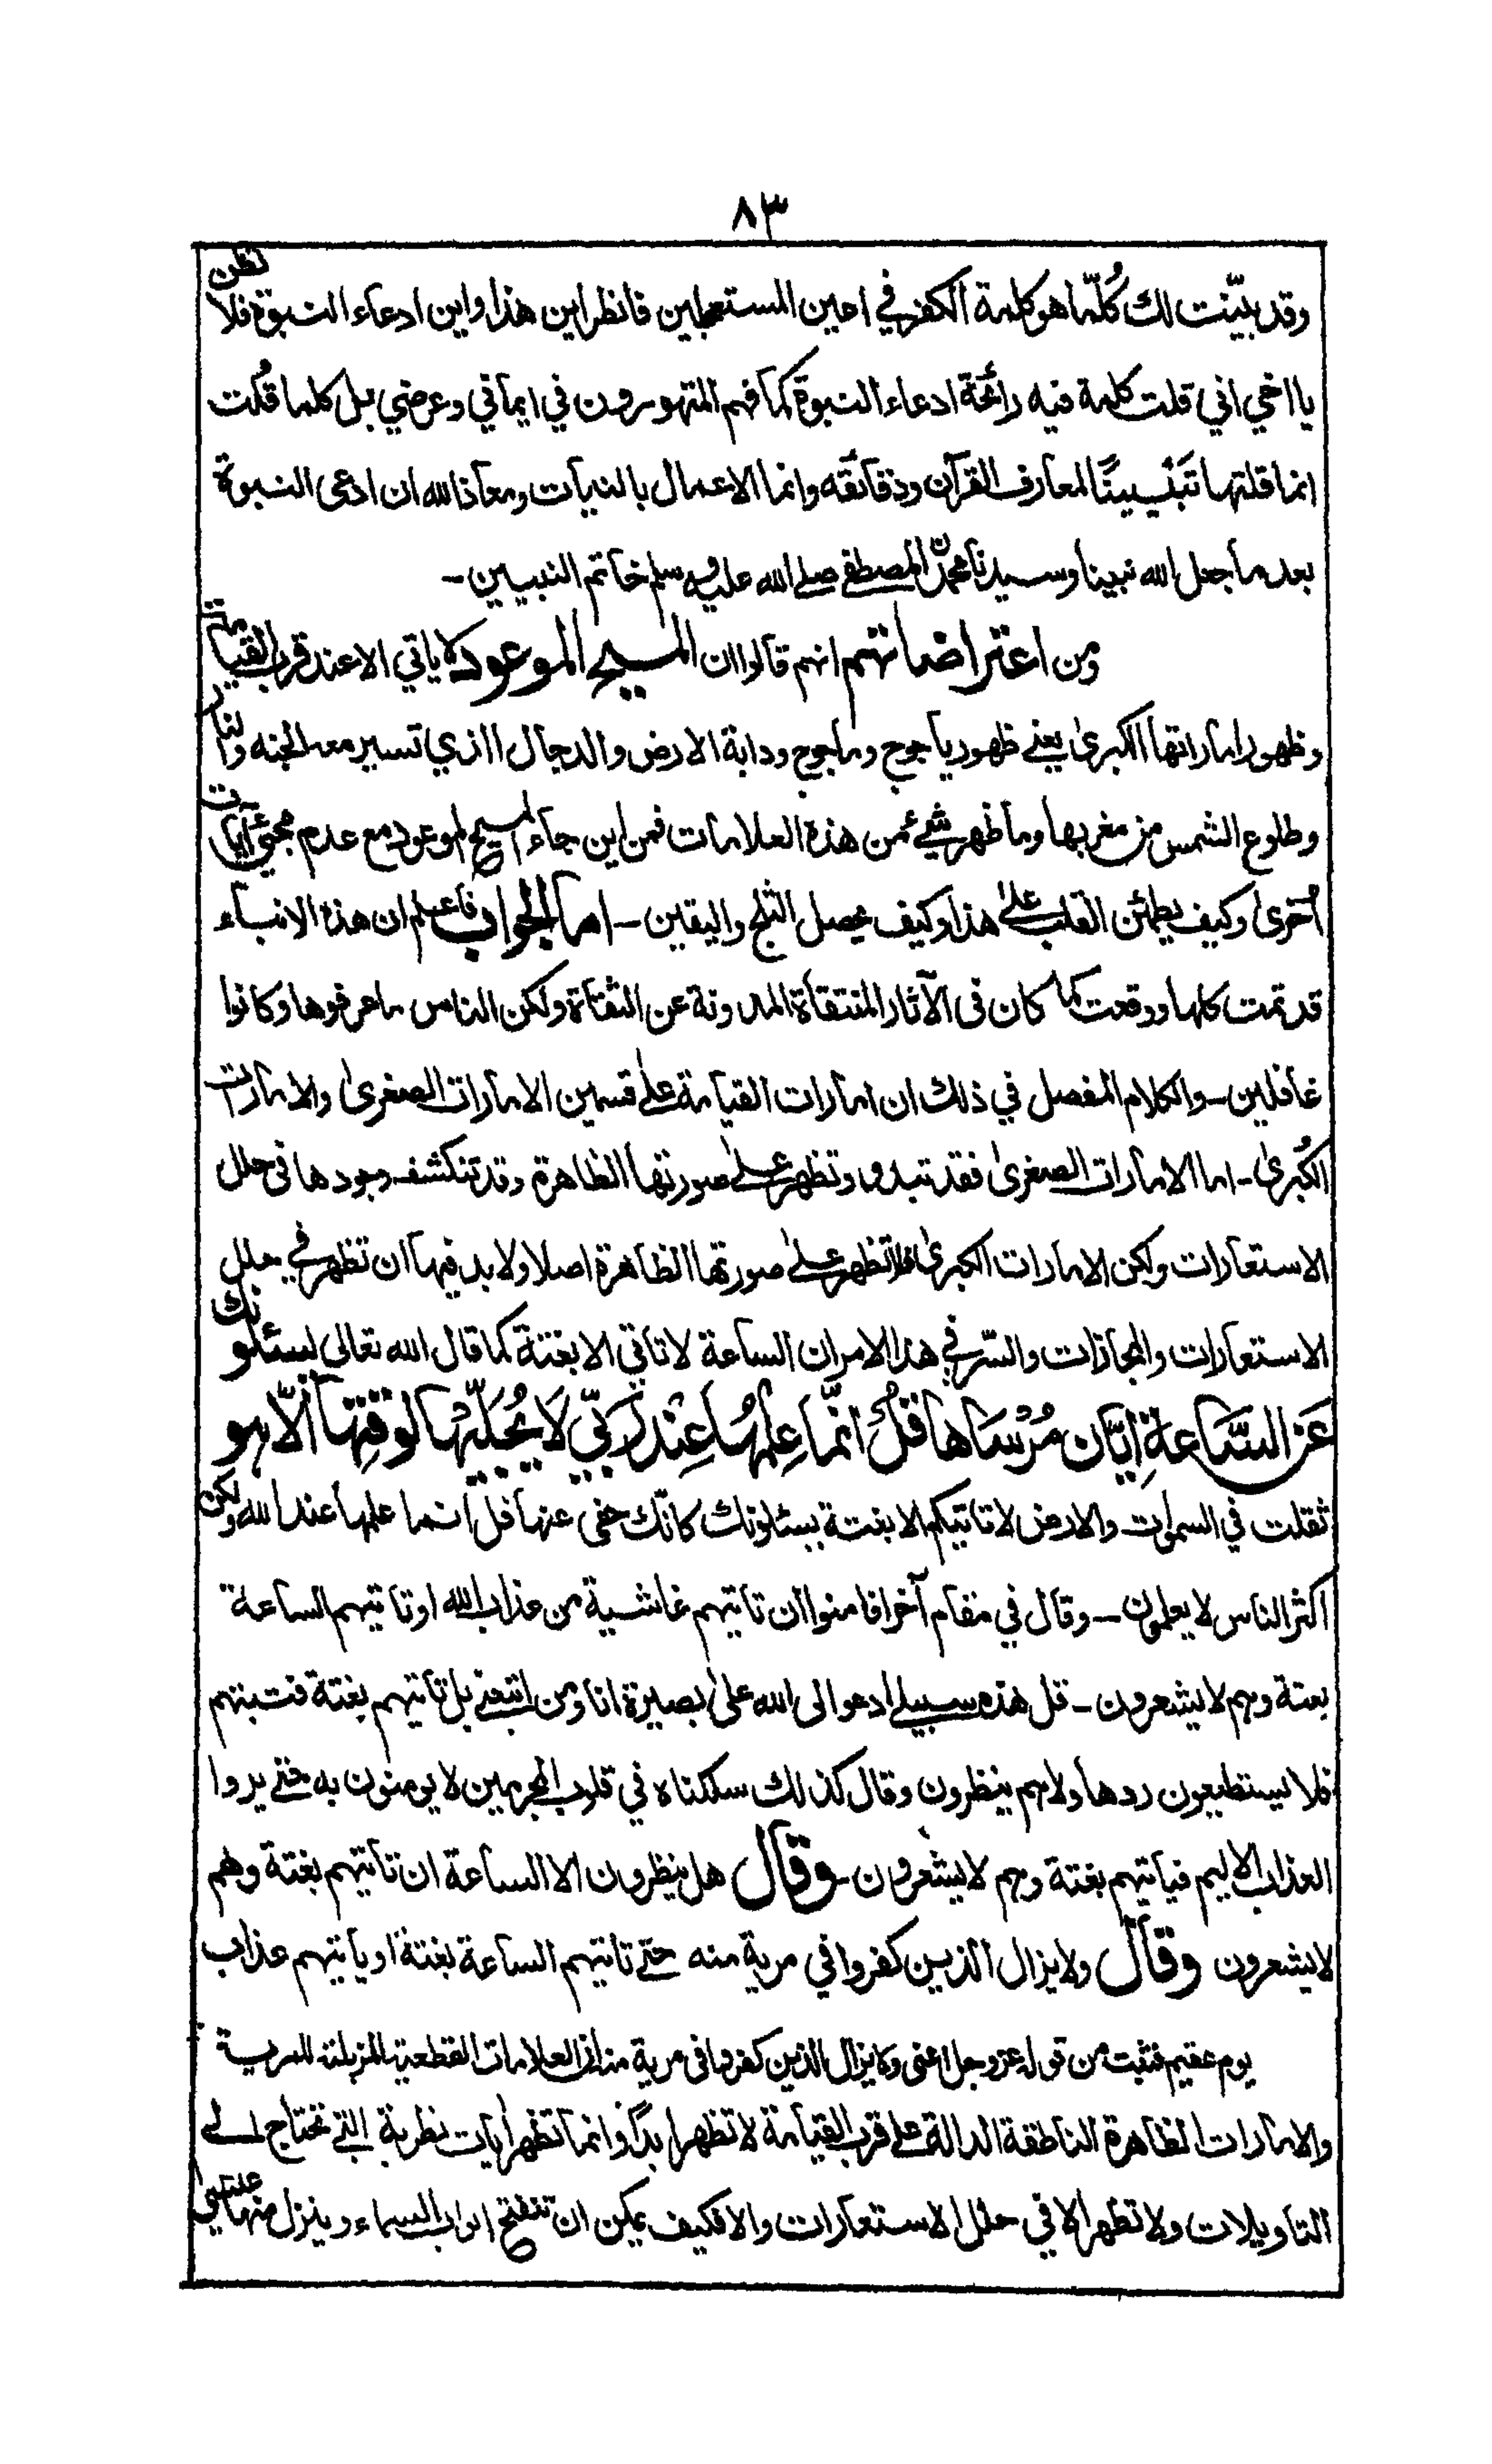 ٨٣
وقد بيّنت لك كُلّما هو كلمة الكفر في اعين المستعجلين فانظر اين هذا واين ادعاء النبوة فلا تظن
يا اخي اني قلت كلمة فيه رائحة ادعاء النبوة كما فهم المتهورون في ايماني وعرضي بل كلما قُلت
انما قلتها تَبْيينًا لمعارف القرآن ودقائقه وانما الاعمال بالنيات ومعاذ الله ان ادعى النبوة
بعد ما جعل الله نبينا وسيدنا محمدن المصطفى صلى الله عليه وسلم خاتم النبيين-
ومن اعتراضاتهم انهم قالوا ان المسيح الموعود لا ياتي الا عند قرب القيامة
وظهور اماراتها الكبرىٰ يعنے ظهور ياجوج وماجوج ودابة الارض والدجال الذي تسير معه الجنه والنار
وطلوع الشمس من مغربها وما ظهر شيء من هذه العلامات فمن اين جاء المسيح الموعود مع عدم مجيئ آيات
اُخرىٰ وكيف يطمئن القلب علىٰ هذا وكيف يحصل الثلج واليقين - اما الجواب فاعلم ان هذه الانباء
قد تمت كلها ووقعت كما كان فى الآثار المنتقاة المدونة عن الثقاة ولكن الناس ما عرفوها وكانوا
غافلين - والكلام المفصل في ذلك ان امارات القيامة علىٰ قسمين الامارات الصغرىٰ والامارات
الكُبرىٰ - اما الامارات الصغرىٰ فقد تبدو وتظهر علىٰ صورتها الظاهرة وقد تنكشف وجودها فى حلل
الاستعارات ولكن الامارات الكبرىٰ فلا تظهر علىٰ صورتها الظاهرة اصلا ولا بد فيها ان تظهر في حلل
الاستعارات والمجازات والسّر في هذا الامر ان الساعة لا تاتي الا بغتة كما قال الله تعالى يسئلونك
عَنِ السَّاعةِ اَيّان مُرْسَاها قلْ انّما عِلمُها عِنْدَ رَبّي لَا يُجَلّيْها لوقتِها اِلّا هو
ثقلت في السموٰت والارض لا تاتيكم الا بغتة يسئلونك كانّك حفى عنها قل انما علمها عند الله ولكن
اكثر الناس لا يعلمون - وقال في مقام آخر افامنوا ان تاتيهم غاشية من عذاب الله او تاتيهم الساعة
بغتة وهم لا يشعرون - قل هذه سبيلے ادعو الى الله علىٰ بصيرة انا ومن اتبعنے بل تاتيهم بغتة فتبهتهم
فلا يستطيعون ردها ولا هم ينظرون وقال كذلك سلكناه في قلوب المجرمين لا يومنون به حتے يروا
العذاب الاليم فياتيهم بغتة وهم لا يشعرون - وقال هل ينظرون الا الساعة ان تاتيهم بغتة وهم
لا يشعرون وقال ولا يزال الذين كفروا في مرية منه حتے تاتيهم الساعة بغتة او ياتيهم عذاب
يوم عقيم فثبت من قوله عزوجل اعنى ولا يزال الذين كفروا فى مرية منه ان العلامات القطعية المزيلة للمرية
والامارات الظاهرة الناطقة الدالة علىٰ قرب القيامة لا تظهر ابدًا وانما تظهر آيات نظرية التي تحتاج الے
التاويلات ولا تظهر الا في حلل الاستعارات والا فكيف يمكن ان تنفتح ابواب السماء وينزل منها عيسىٰ